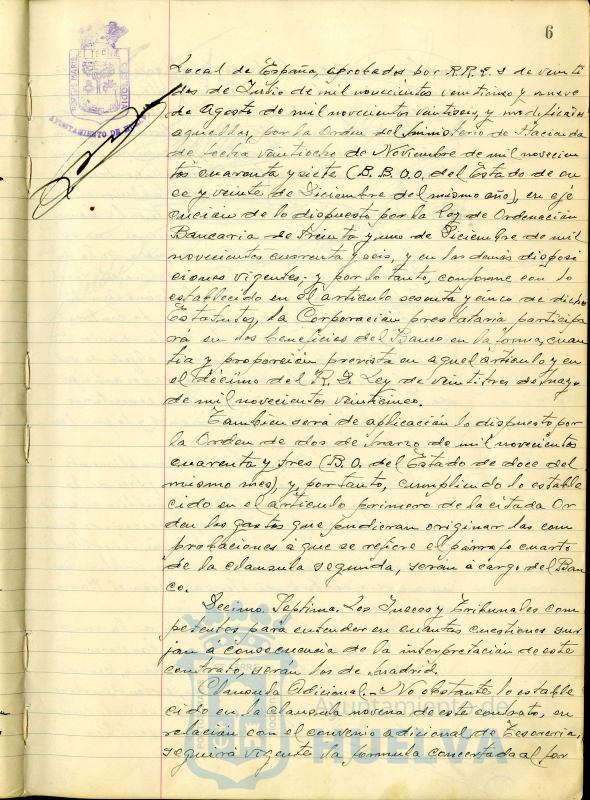 6
AYUNTAMIENTO DE HUELVA
Local de España, aprobados por R.R.D.D. de veinti
dos de Julio de mil novecientos veintiuno y nueve
de Agosto de mil novecientos veintiseis, y modificados
aquellos, por la Orden del Ministerio de Hacienda
de fecha veintiocho de Noviembre de mil novecien
tos cuarenta y siete (B.B.O.O. del Estado de on
ce y veinte de Diciembre del mismo año), en eje
cución de lo dispuesto por la Ley de Ordenación
Bancaria de treinta y uno de Diciembre de mil
novecientos cuarenta y seis, y en las demás disposi
ciones vigentes; y por lo tanto, conforme con lo
establecido en el artículo sesenta y cinco de dichos
Estatutos, la Corporación prestataria participa
rá en los beneficios del Banco en la forma, cuan
tia y proporción prevista en aquel artículo y en
el décimo del R. D. Ley de veintitres de Mayo
de mil novecientos veinticinco.
Tambien será de aplicación lo dispuesto por
la Orden de dos de Marzo de mil novecientos
cuarenta y tres (B.O. del Estado de doce del
mismo mes), y, por tanto, cumpliendo lo estable
cido en el artículo primero de la citada Or
den los gastos que pudieran originar las com
probaciones á que se refiere el párrafo cuarto
de la clausula segunda, serán á cargo del Ban
co.
Decimo Septima. Los Jueces y Tribunales com
petentes para entender en cuantas cuestiones sur
jan á consecuencia de la interpretación de este
contrato, serán los de Madrid.
Clausula Adicional.- No obstante lo estable
cido en la Clausula novena de este contrato, en
relación con el convenio adicional de Tesoreria,
seguirá vigente la formula concertada al for
Ayuntamiento de
HUELVA